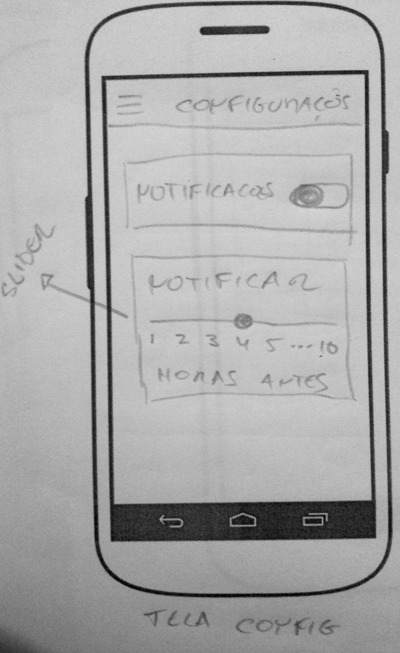 CONFIGURAÇÕS
NOTIFICACOES
SLIDER
NOTIFICAR
1 2 3 4 5 ... 10
HORAS ANTES
TELA CONFIG